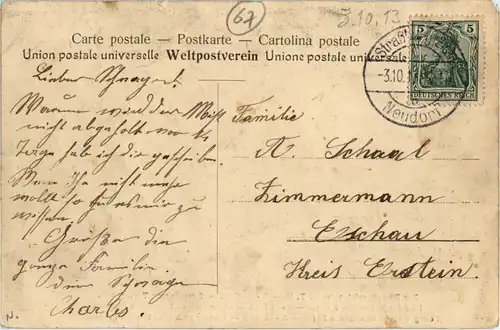 67
3.10.13
Carte postale – Postkarte – Cartolina postale
Union postale universelle Weltpostverein Unione postale universale
5 5
DEUTSCHES REICH
Straßb
-3.10.
Neudorf
Lieber Schwager!
Warum wird der Mist
nicht abgeholt vor
Tage hab ich die geschrieben.
Wenn Ihr nicht mehr
wollt so tut es mir zu
wissen.
Grüße die
ganze Familie
dein Schwager
Charles.
Familie
A. Schaal
Zimmermann
Eschau
Kreis Erstein.
N.